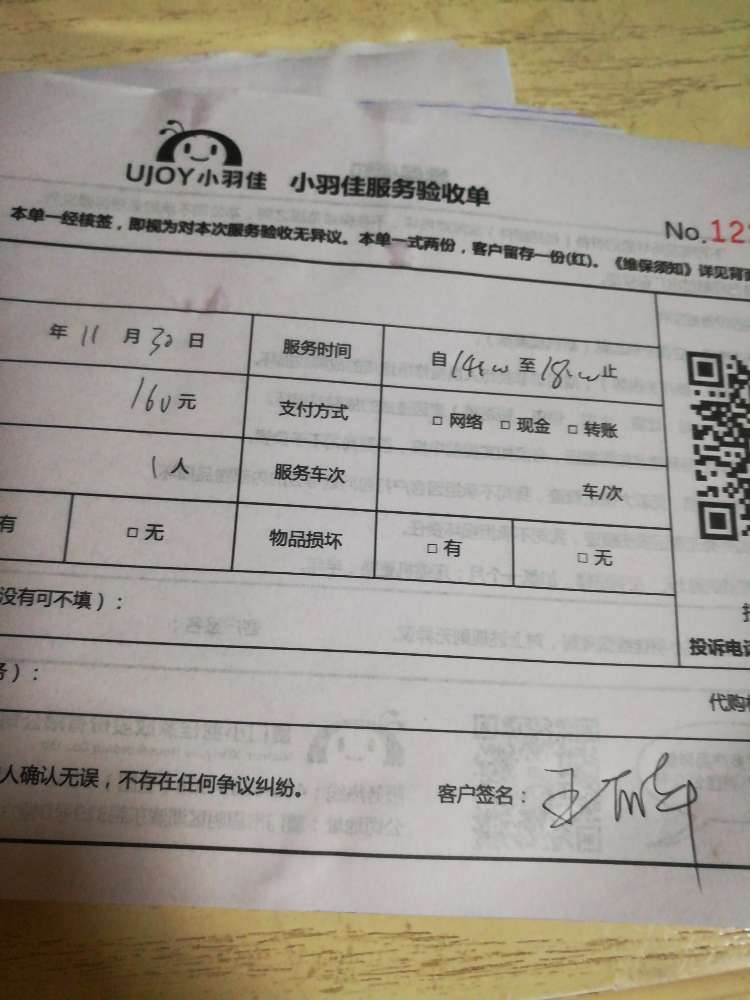 UJOY小羽佳 小羽佳服务验收单
No.12
本单一经核签，即视为对本次服务验收无异议。本单一式两份，客户留存一份(红)。《维保须知》详见背面
年 11 月 30 日 服务时间 自 14:00 至 18:00 止
160 元 支付方式 □ 网络 □ 现金 □ 转账
1 人 服务车次 车/次
有 □ 无 物品损坏 □ 有 □ 无
没有可不填）：
投诉电话
）：
代购
人确认无误，不存在任何争议纠纷。 客户签名：